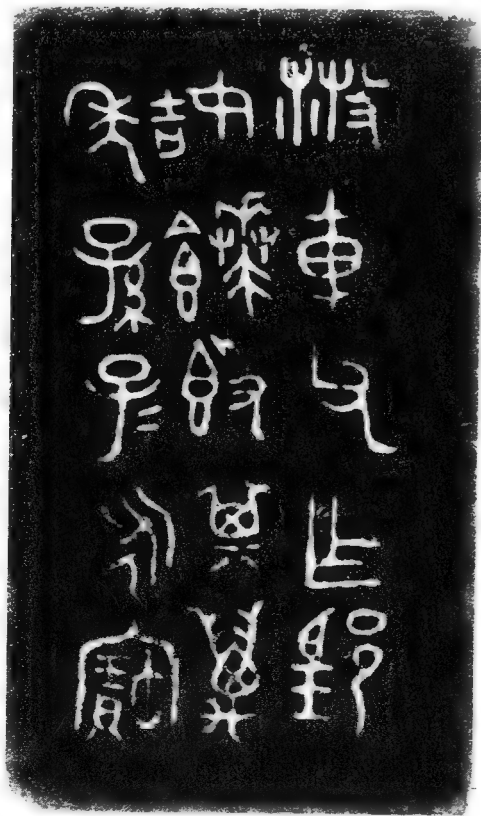 散車父乍
姞𩛥𣪘其萬
年孫子子永寶